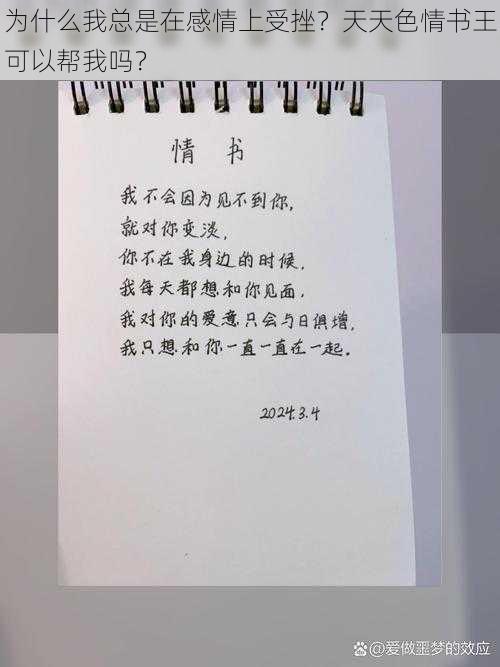 为什么我总是在感情上受挫？天天色情书王
可以帮我吗？
情书
我不会因为见不到你，
就对你变淡，
你不在我身边的时候，
我每天都想和你见面，
我对你的爱意只会与日俱增，
我只想和你一直一直在一起。
2024.3.4
爱做噩梦的效应